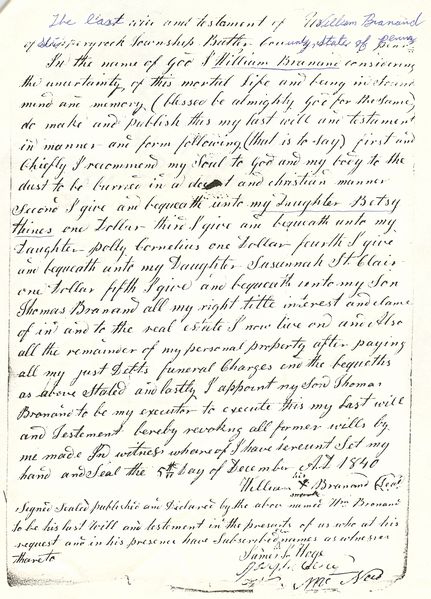 The Last will and testament of William Branand
of Slipperyrock Township Butler County, State of Penna
In the name of God I William Branand considering
the uncertainty of this mortal life and being in sound
mind and memory (blessed be almighty God for the same)
do make and publish this my last will and testament
in manner and form following (that is to say) first and
Chiefly I recommend my Soul to God and my body to the
dust to be burried in a decent and christian manner
Second I give and bequeath unto my Daughter Betsy
Hines one Dollar third I give and bequeath unto my
Daughter polly Cornelius one Dollar fourth I give
and bequeath unto my Daughter Susannah St. Clair
one Dollar fifth I give and bequeath unto my Son
Thomas Branand all my right title interest and clame
of in and to the real estate I now live on and Also
all the remainder of my personal property after paying
all my just Debts funeral Charges and the bequeths
as above Stated and lastly I appoint my Son Thomas
Branand to be my executor to execute this my last will
and Testement hereby revoking all former wills by
me made In witness whareof I have hereunt Set my
hand and Seal the 5th Day of December A.D. 1840
William his X mark Branand Seal
Signed Sealed published and Diclared by the above named Wm Branand
to be his last Will and testement in the presents of us who at his
request and in his presence have Subscribed names as witnesses
thareto
James Hoge
Mc Need